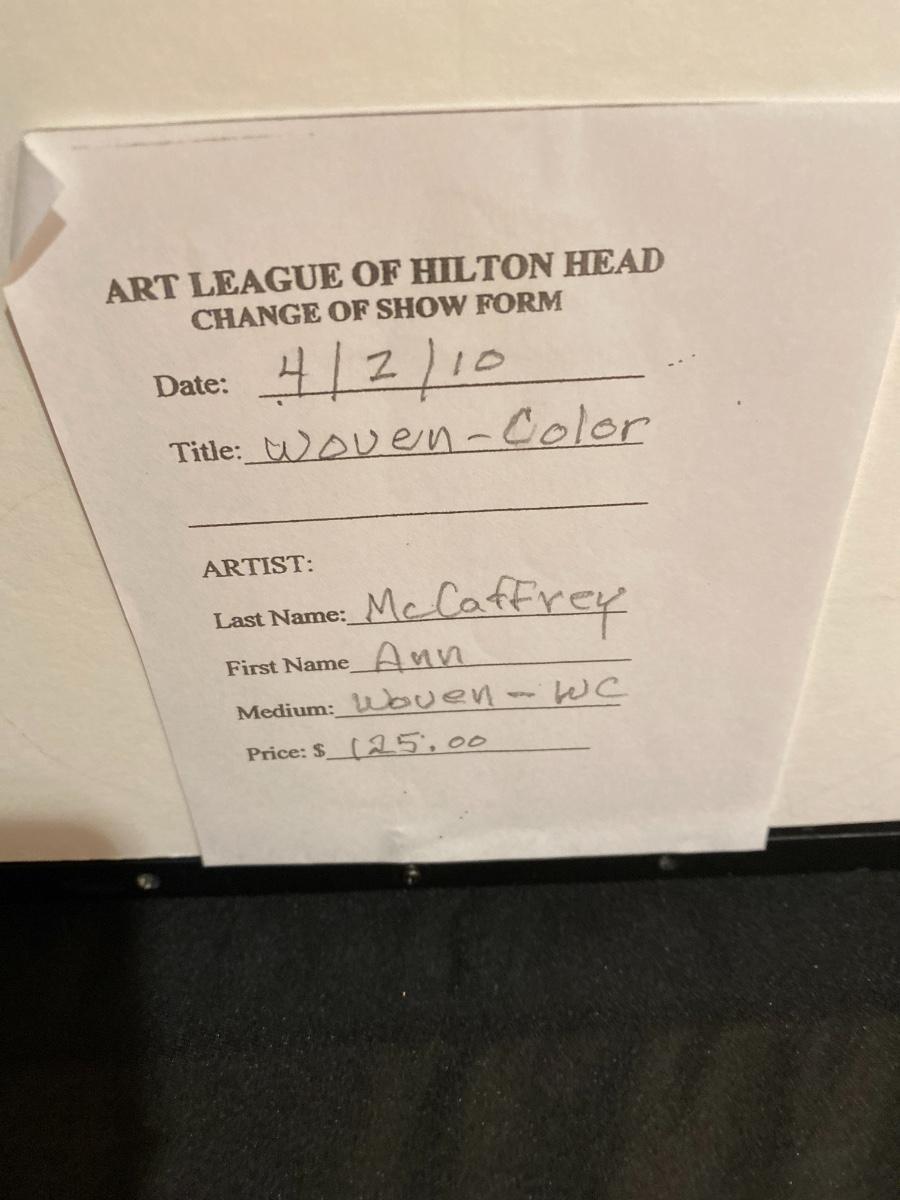 ART LEAGUE OF HILTON HEAD
CHANGE OF SHOW FORM
Date: 4/2/10
Title: Woven-Color
ARTIST:
Last Name: McCaffrey
First Name Ann
Medium: Woven-WC
Price: $ 125.00